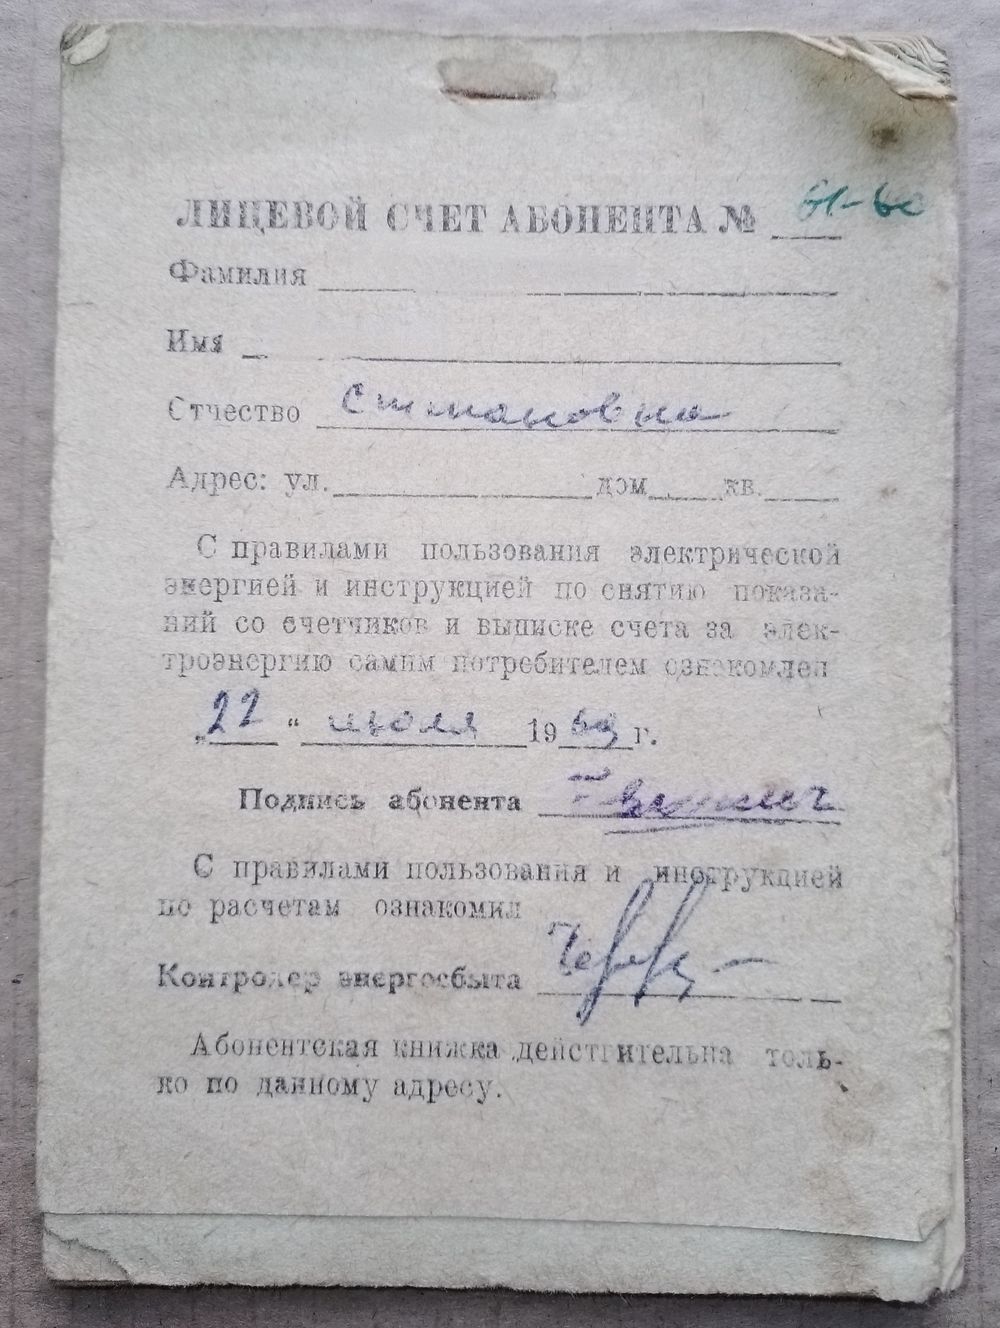 ЛИЦЕВОЙ СЧЕТ АБОНЕНТА № 61-60
Фамилия
Имя
Отчество Степановна
Адрес: ул. дом кв.
С правилами пользования электрической
энергией и инструкцией по снятию показа-
ний со счетчиков и выписке счета за элек-
троэнергию самим потребителем ознакомлен
„22“ июля 1969 г.
Подпись абонента
С правилами пользования и инструкцией
по расчетам ознакомил
Контролер энергосбыта
Абонентская книжка действительна толь-
ко по данному адресу.